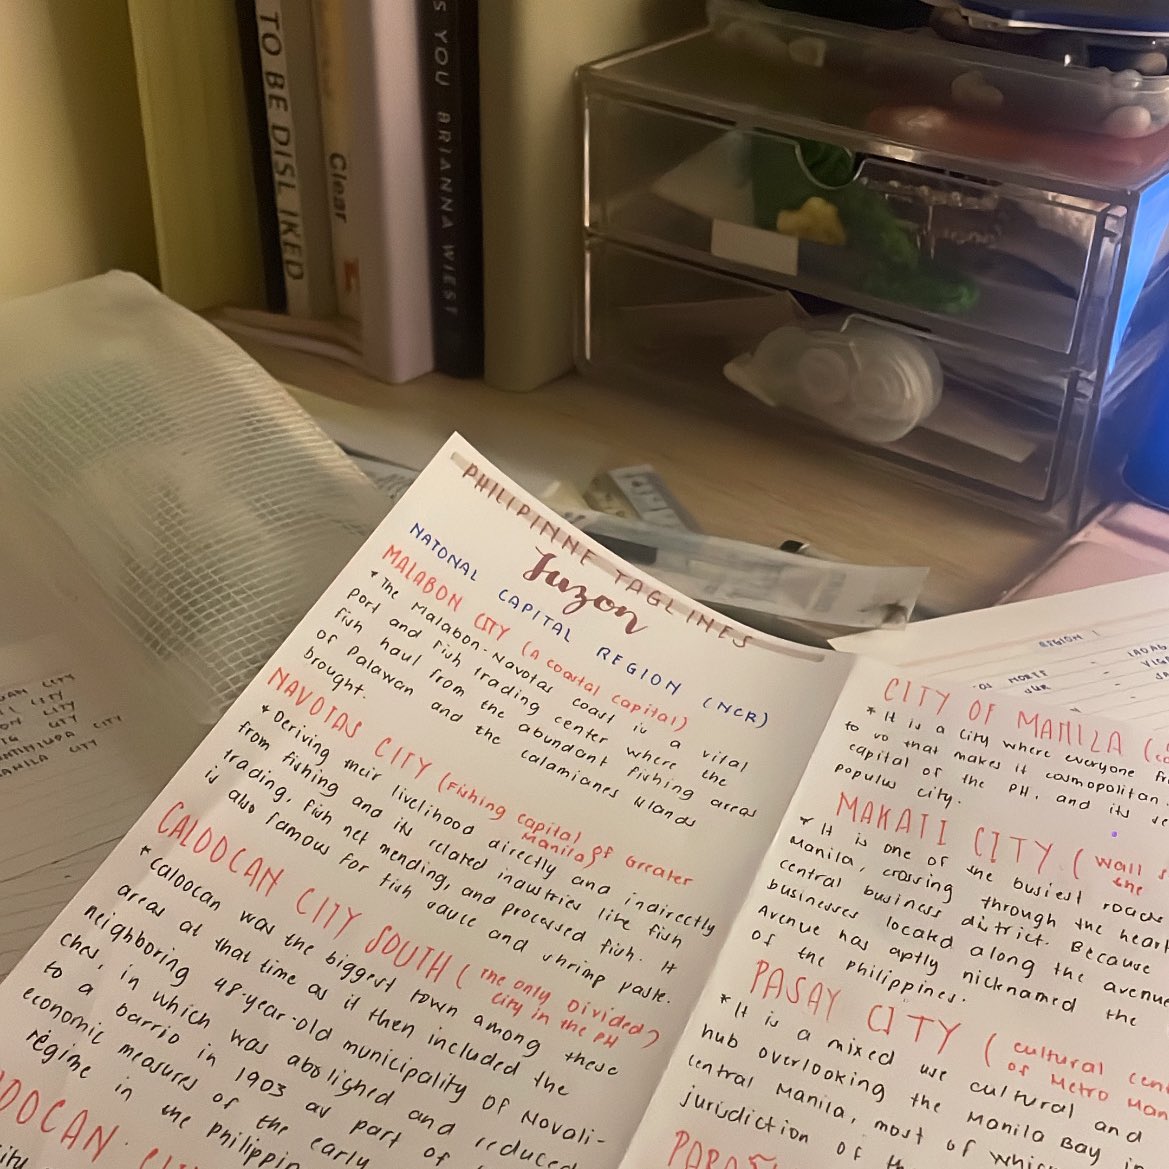 TO BE DISLIKED
Clear
S YOU BRIANNA WIEST
PHILIPINNE TAGLINES
Luzon
NATONAL CAPITAL REGION (NCR)
MALABON CITY (A coastal capital)
* The Malabon-Navotas coast is a vital
port and fish trading center where the
fish haul from the abundant fishing areas
of Palawan and the calamianes Islands
brought.
NAVOTAS CITY (Fishing capital of Greater
Manila)
* Deriving their livelihood directly and indirectly
from fishing and its related industries like fish
trading, fish net mending, and processed fish. It
is also famous for fish sauce and shrimp paste.
CALOOCAN CITY SOUTH (The only Divided)
City in the PH
* Caloocan was the biggest town among these
areas at that time as it then included the
neighboring 48-year-old municipality of Novali-
ches, in which was abolished and reduced
to a barrio in 1903 as part of
economic measures of the early
régime in the Philippin
OOCAN CI
CITY OF MANILA (
* It is a city where everyone fr
to us that makes it cosmopolitan.
capital of the PH, and its se
populus city.
MAKATI CITY (Wall s
the
* It is one of the busiest roads
Manila, crossing through the heart
central business district. Because
businesses located along the avenue
Avenue has aptly nicknamed the
of the Philippines.
PASAY CITY (cultural cent
of Metro Man
* It is a mixed use cultural and
hub overlooking the Manila Bay in
central Manila, most of which
jurisdiction of th
REGION 1
OS NORTE - LAOAG
SUR - VIGA
CITY
CITY
CITY
CITY
MUNTINLUPA CITY
MANILA CITY